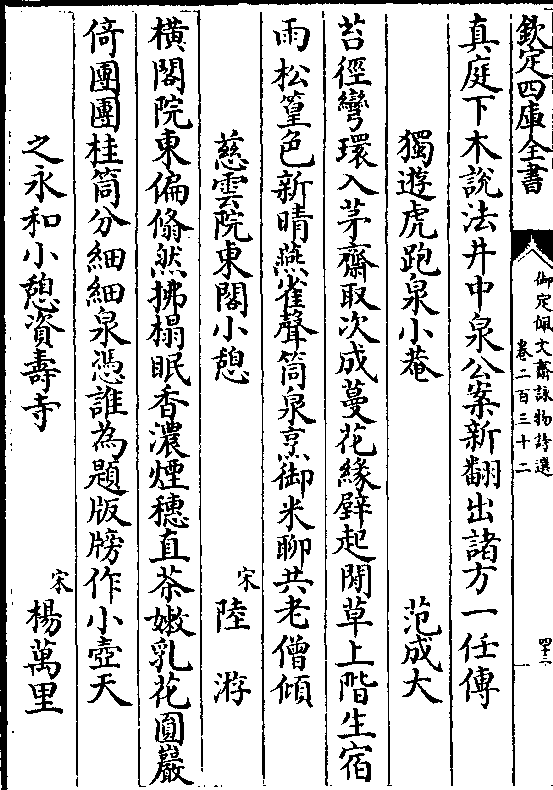 欽定四庫全書
御定佩文齋詠物詩選
卷二百三十二
真庭下木說法井中泉公案新翻出諸方一任傳
獨遊虎跑泉小菴 范成大
苔徑彎環入茅齋取次成蔓花緣壁起閒草上階生宿
雨松篁色新晴燕雀聲筒泉烹御米聊共老僧傾
慈雲院東閣小憩 宋 陸游
橫閣院東偏翛然拂榻眠香濃煙穗直茶嫩乳花圓巖
倚團團桂筒分細細泉憑誰為題版牓作小壺天
之永和小憩資壽寺 宋 楊萬里